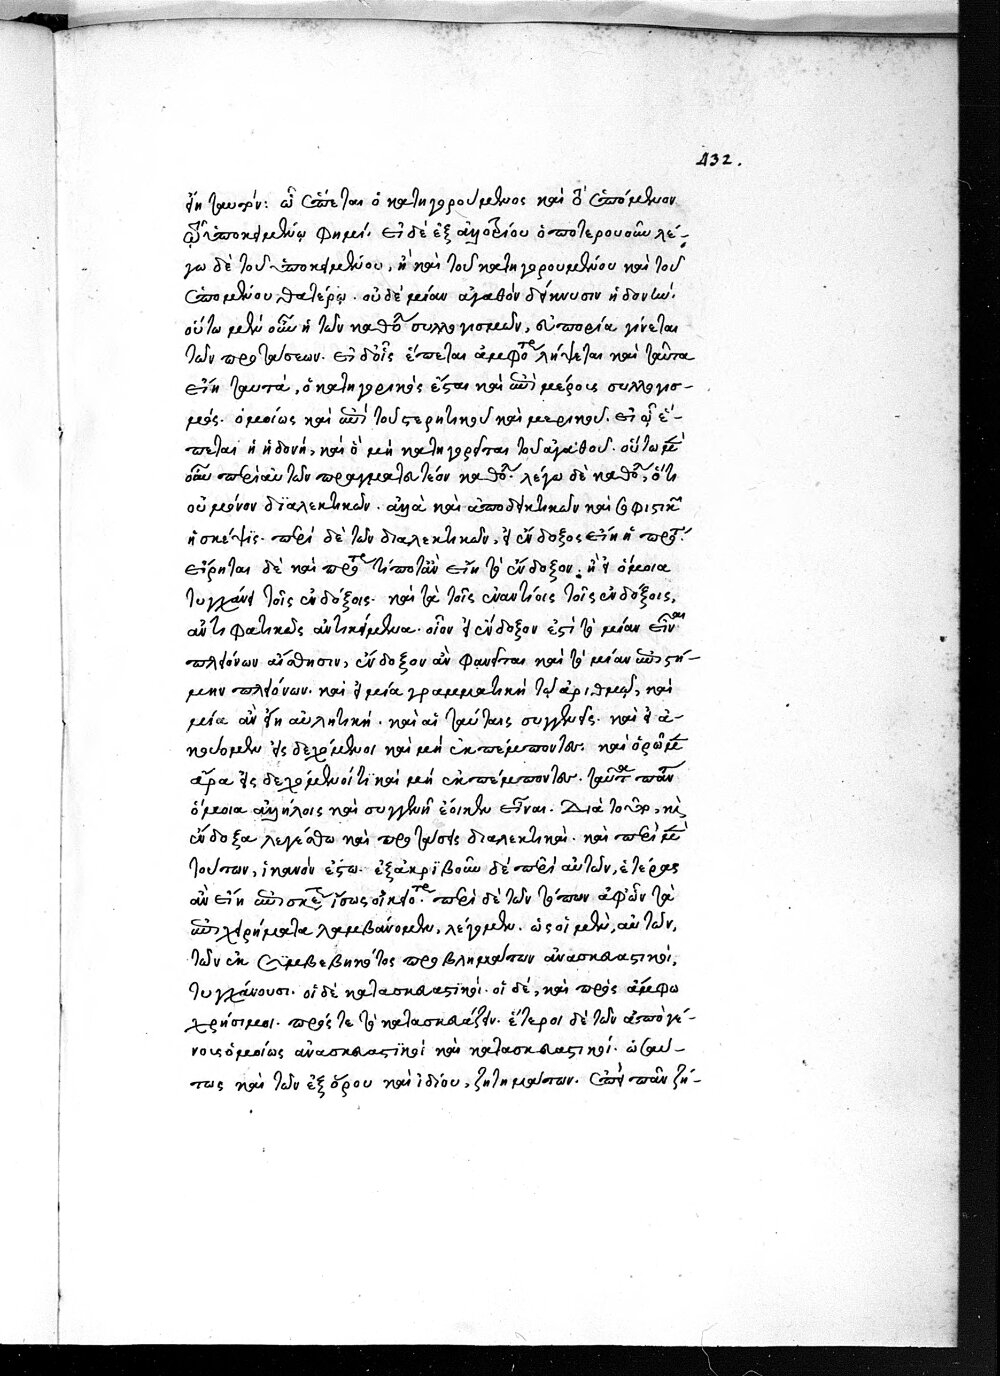 432.
εἴη ταυτόν: ᾧ ἕπεται ὁ κατηγορούμενος καὶ τὸ ἑπόμενον
τῷ ὑποκειμένῳ φημί. εἰ δὲ ἐξ ὁποτερουοῦν λέ-
γω δὲ τοῦ ὑποκειμένου, ἢ καὶ τοῦ κατηγορουμένου καὶ τοῦ
ἑπομένου θατέρῳ. οὐδεμίαν ἀγαθὸν δείκνυσιν ἡδονήν.
οὕτω μὲν οὖν ἡ τῶν καθόλου συλλογισμῶν, εὐπορία γίνεται
τῶν προτάσεων. εἰ δ' οἷς ἕπεται ἀμφότερα λήψεται καὶ ταῦτα
εἴη ταυτά, ὁ κατηγορικὸς ἔσται καὶ ἐπὶ μέρους συλλογισ-
μός. ὁμοίως καὶ ἐπὶ τοῦ στερητικοῦ καὶ μερικοῦ. εἰ ᾧ ἕ-
πεται ἡ ἡδονή, καὶ ὃ μὴ κατηγορεῖται τοῦ ἀγαθοῦ. οὕτω μὲν
οὖν περὶ αὐτῶν πραγματευτέον καθόλου. λέγω δὲ καθόλου, ὅτι
οὐ μόνον διαλεκτικῶν. ἀλλὰ καὶ ἀποδεικτικῶν καὶ σοφιστικῶν
ἡ σκέψις. περὶ δὲ τῶν διαλεκτικῶν, εἰ ἔνδοξος εἴη ἡ πρότασις.
εἴρηται δὲ καὶ πρότερον τί ποτ' ἂν εἴη τὸ ἔνδοξον. ἢ εἰ ὅμοια
τυγχάνει τοῖς ἐνδόξοις. καὶ τὰ τοῖς ἐναντίοις τοῖς ἐνδόξοις,
ἀντιφατικῶς ἀντικείμενα. οἷον εἰ ἔνδοξον ἐστὶ τὸ μίαν εἶναι
πλειόνων αἴσθησιν, ἔνδοξον ἂν φανεῖται καὶ τὸ μίαν ἐπιστή-
μην πλειόνων. καὶ εἰ μία γραμματικὴ τῷ ἀριθμῷ, καὶ
μία ἂν εἴη αὐλητική. καὶ αἱ ταύταις συγγενεῖς. καὶ εἰ ἀ-
κούομεν εἰσδεχόμενοι καὶ μὴ ἐκπέμποντες: καὶ ὁρῶμεν
ἄρα εἰσδεχόμενοί τι καὶ μὴ ἐκπέμποντες. ταῦτα πάντα
ὅμοια ἀλλήλοις καὶ συγγενῆ ἔοικεν εἶναι. Διὰ τοῦτο, καὶ
ἔνδοξα λεγέσθω καὶ προτάσεις διαλεκτικαί. καὶ περὶ μὲν
τούτων, ἱκανὸν ἔστω. ἐξακριβοῦν δὲ περὶ αὐτῶν, ἑτέρας
ἂν εἴη ἐπισκέψεως ἴσως οἰκειότερον. περὶ δὲ τῶν τόπων ἀφ' ὧν τὰ
ἐπιχειρήματα λαμβάνομεν, λέγομεν. ὡς οἱ μὲν, αὐτῶν,
τῶν ἐκ συμβεβηκότος προβλημάτων ἀνασκευαστικοί,
τυγχάνουσι. οἱ δὲ κατασκευαστικοί. οἱ δέ, καὶ πρὸς ἄμφω
χρήσιμοι. πρός τε τὸ κατασκευάζειν. ἕτεροι δὲ τῶν ἀπὸ γέ-
νους ὁμοίως ἀνασκευαστικοὶ καὶ κατασκευαστικοί. ὡσαύ-
τως καὶ τῶν ἐξ ὅρου καὶ ἰδίου, ζητημάτων. ἐπεὶ πᾶν ζή-